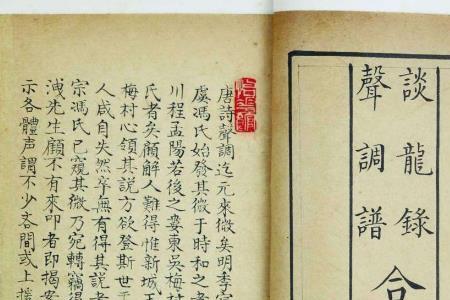 談龍錄
聲調譜
合
唐詩聲調迄元來微矣明季
虞馮氏始發其微于時和之者
川程孟陽若後之婁東吳梅村
氏者矣顧解人難得惟新城王
梅村心領其說方欲登斯世于
人咸自失然卒無有得其說者
宗馮氏已窺其微乃宛轉竊得
洩先生顧不有來叩者即揭
示各體声調不少吝間或上援